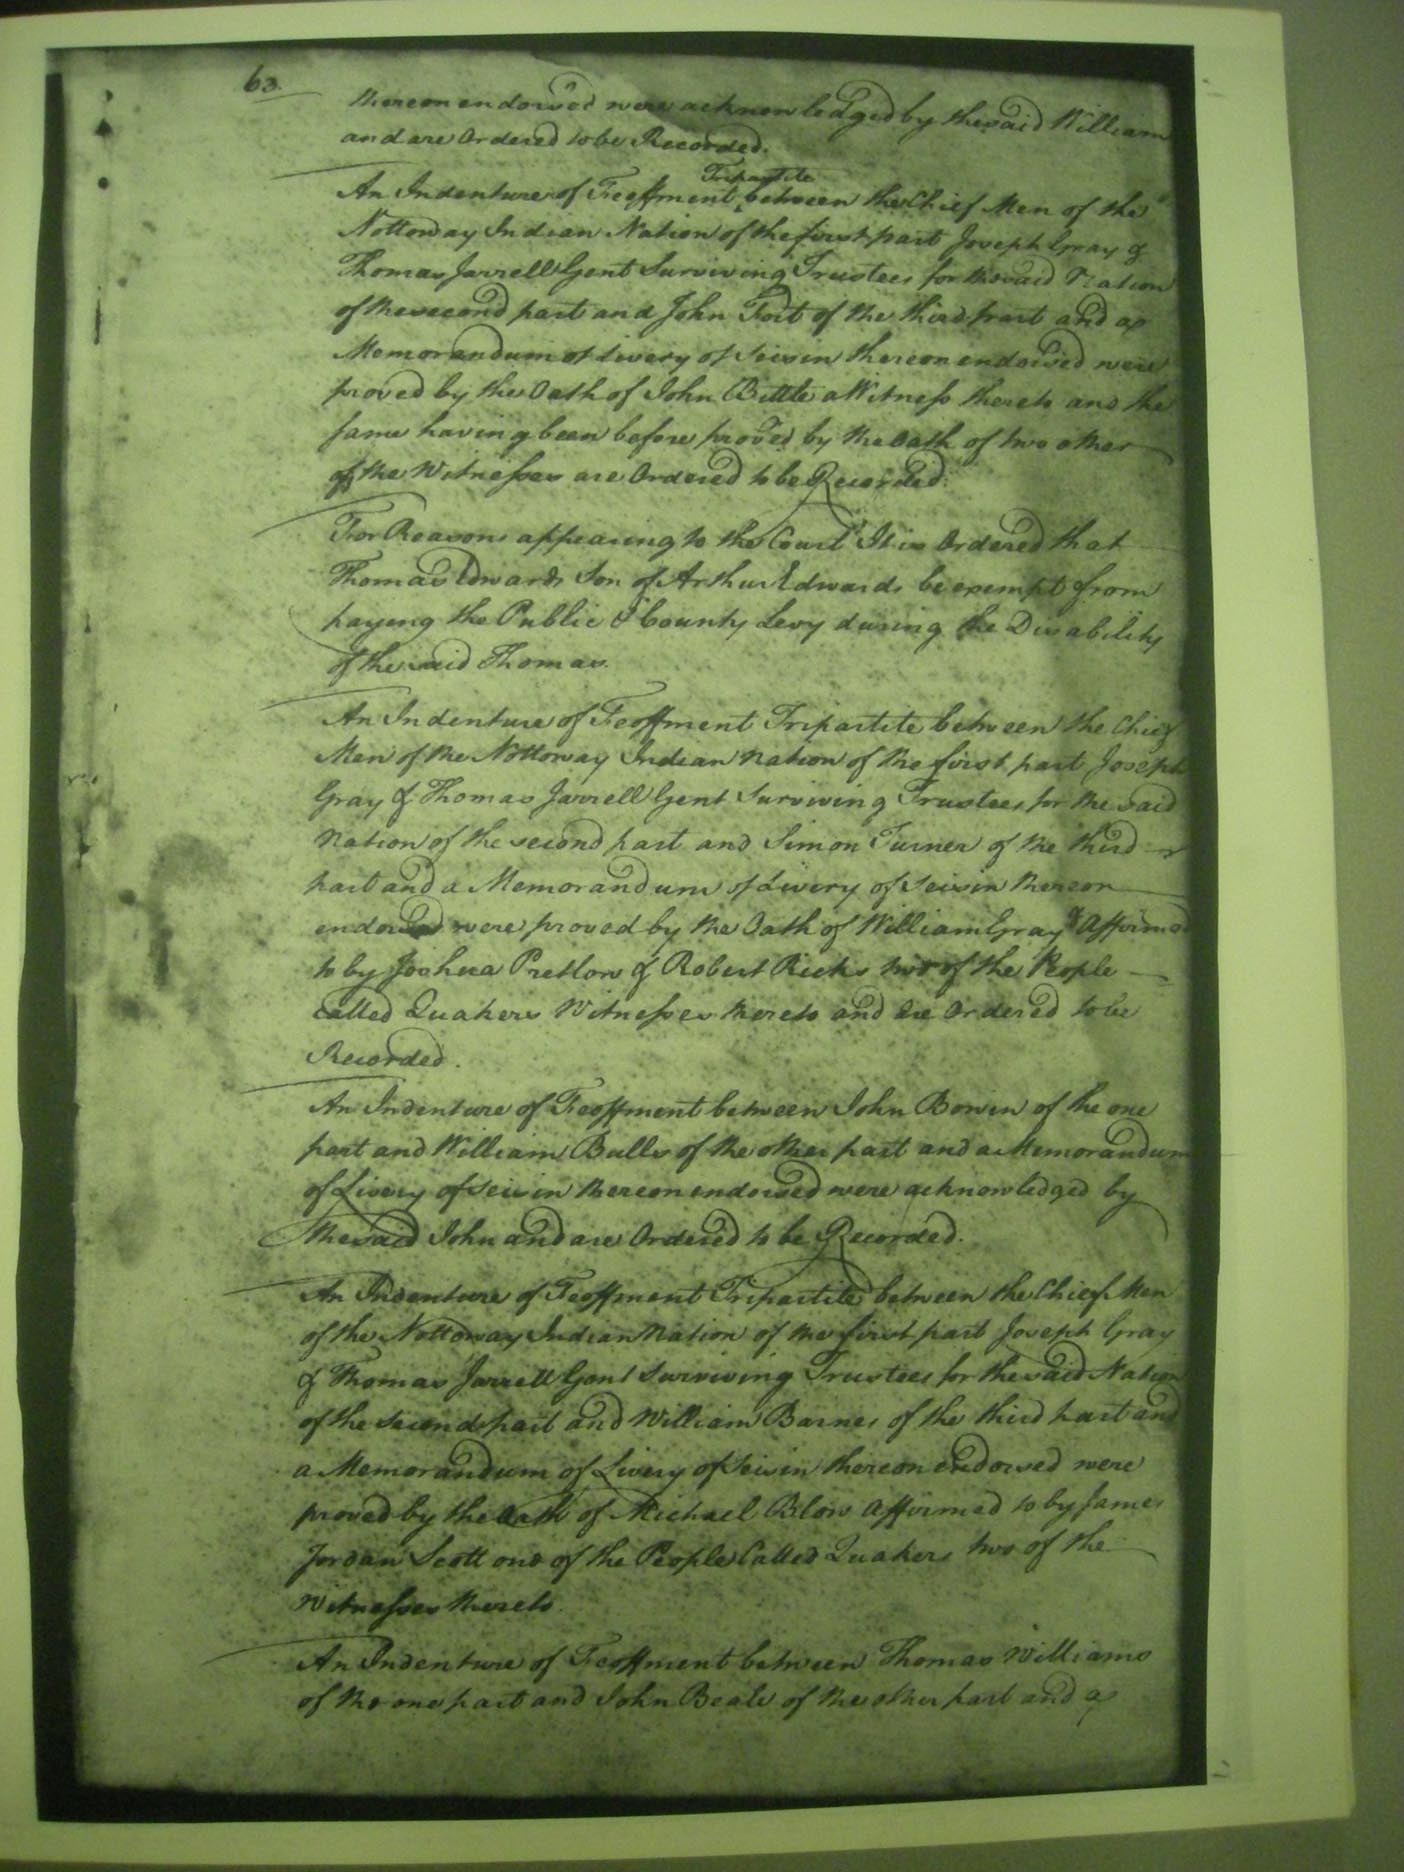 63.
thereon endorsed were acknowledged by the said William
and are Ordered to be Recorded.
Tripartite
An Indenture of Feoffment between the Chief Men of the
Nottoway Indian Nation of the first part Joseph Gray &
Thomas Jarrell Gent Surviving Trustees for the said Nation
of the second part and John Fort of the third part and a
Memorandum of Livery of Seisin thereon endorsed were
proved by the Oath of John Bittle a Witness thereto and the
same having been before proved by the Oath of two other
of the Witnesses are Ordered to be Recorded.
For Reasons appearing to the Court It is Ordered that
Thomas Edwards Son of Arthur Edwards be exempt from
paying the Public & County Levy during the Disability
of the said Thomas.
An Indenture of Feoffment Tripartite between the Chief
Men of the Nottoway Indian Nation of the first part Joseph
Gray & Thomas Jarrell Gent Surviving Trustees for the said
Nation of the second part and Simon Turner of the third
part and a Memorandum of Livery of Seisin thereon
endorsed were proved by the Oath of William Gray & Affirmed
to by Joshua Pretlow & Robert Ricks two of the People
called Quakers Witnesses thereto and are Ordered to be
Recorded.
An Indenture of Feoffment between John Bowin of the one
part and William Bulls of the other part and a Memorandum
of Livery of Seisin thereon endorsed were acknowledged by
the said John and are Ordered to be Recorded.
An Indenture of Feoffment Tripartite between the Chief Men
of the Nottoway Indian Nation of the first part Joseph Gray
& Thomas Jarrell Gent Surviving Trustees for the said Nation
of the second part and William Barnes of the third part and
a Memorandum of Livery of Seisin thereon endorsed were
proved by the Oath of Michael Blow Affirmed to by James
Jordan Scott one of the People Called Quakers two of the
Witnesses thereto.
An Indenture of Feoffment between Thomas Williams
of the one part and John Beale of the other part and a